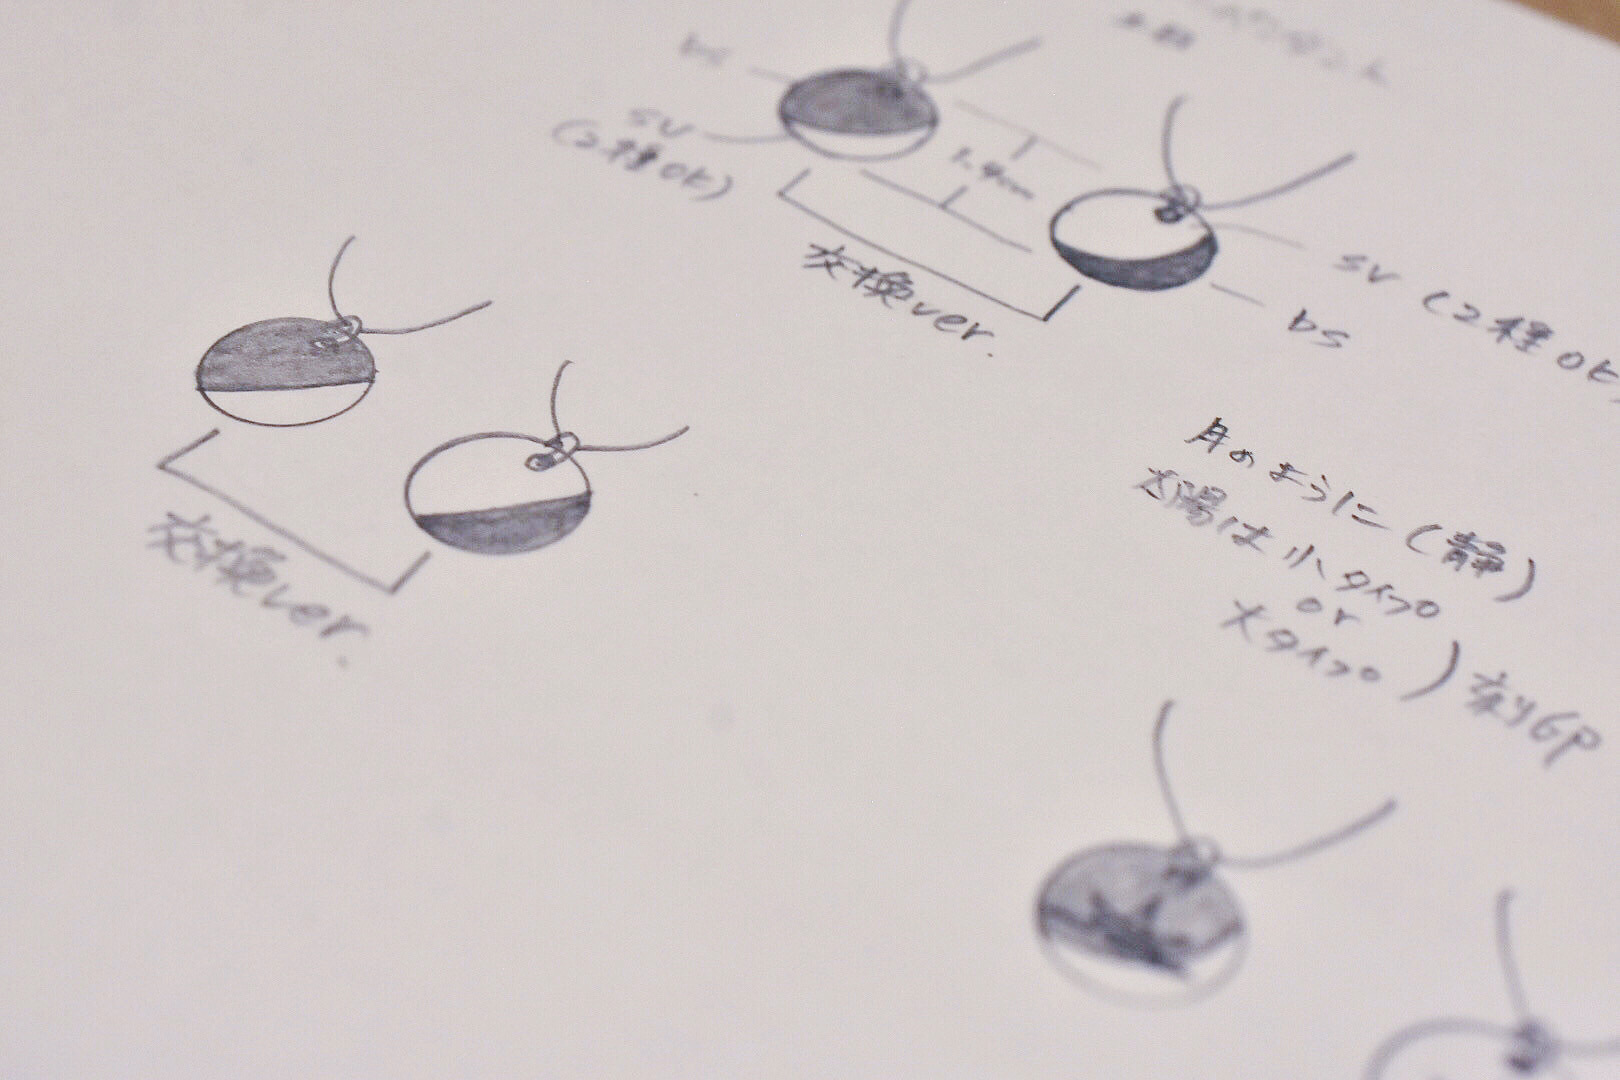 bs
SV
(2種OK)
1.4cm
交換ver.
SV (2種OK)
bs
交換ver.
月のように(静)
太陽は小タイプ
or
大タイプ